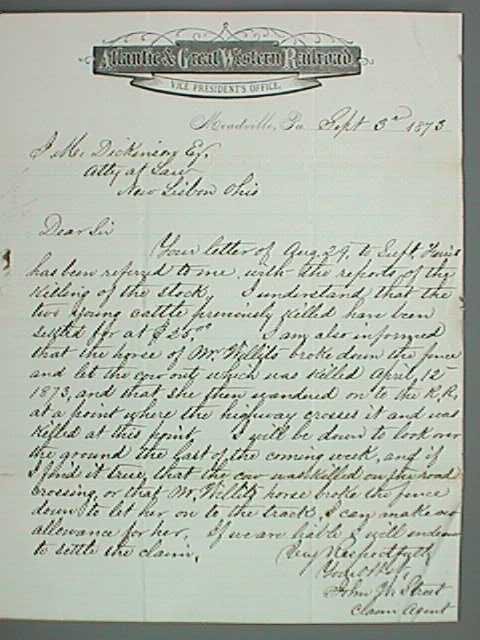 Atlantic & Great Western Railroad.
VICE PRESIDENT'S OFFICE.
Meadville, Pa Sept 3rd 1873
J. M. Dickinson Esq.
Atty at Law
New Lisbon Ohio
Dear Sir
Your letter of Aug. 29, to Supt.
has been referred to me, with the reports of the
killing of the stock, I understand that the
two young cattle previously killed have been
settled for at $25.00 I am also informed
that the horse of Mr Willits broke down the fence
and let the cow out, which was killed April 12
1873, and that she then wandered on to the R.R.
at a point where the highway crosses it and was
killed at this point, I will be down to look over
the ground the last of the coming week, and if
I find it true, that the cow was killed on the road
crossing, or that Mr. Willits horse broke the fence
down to let her on to the track, I can make no
allowance for her, If we are liable I will endeavor
to settle the claim,
Very Respectfully
Your Obt,
John Street
Claim Agent